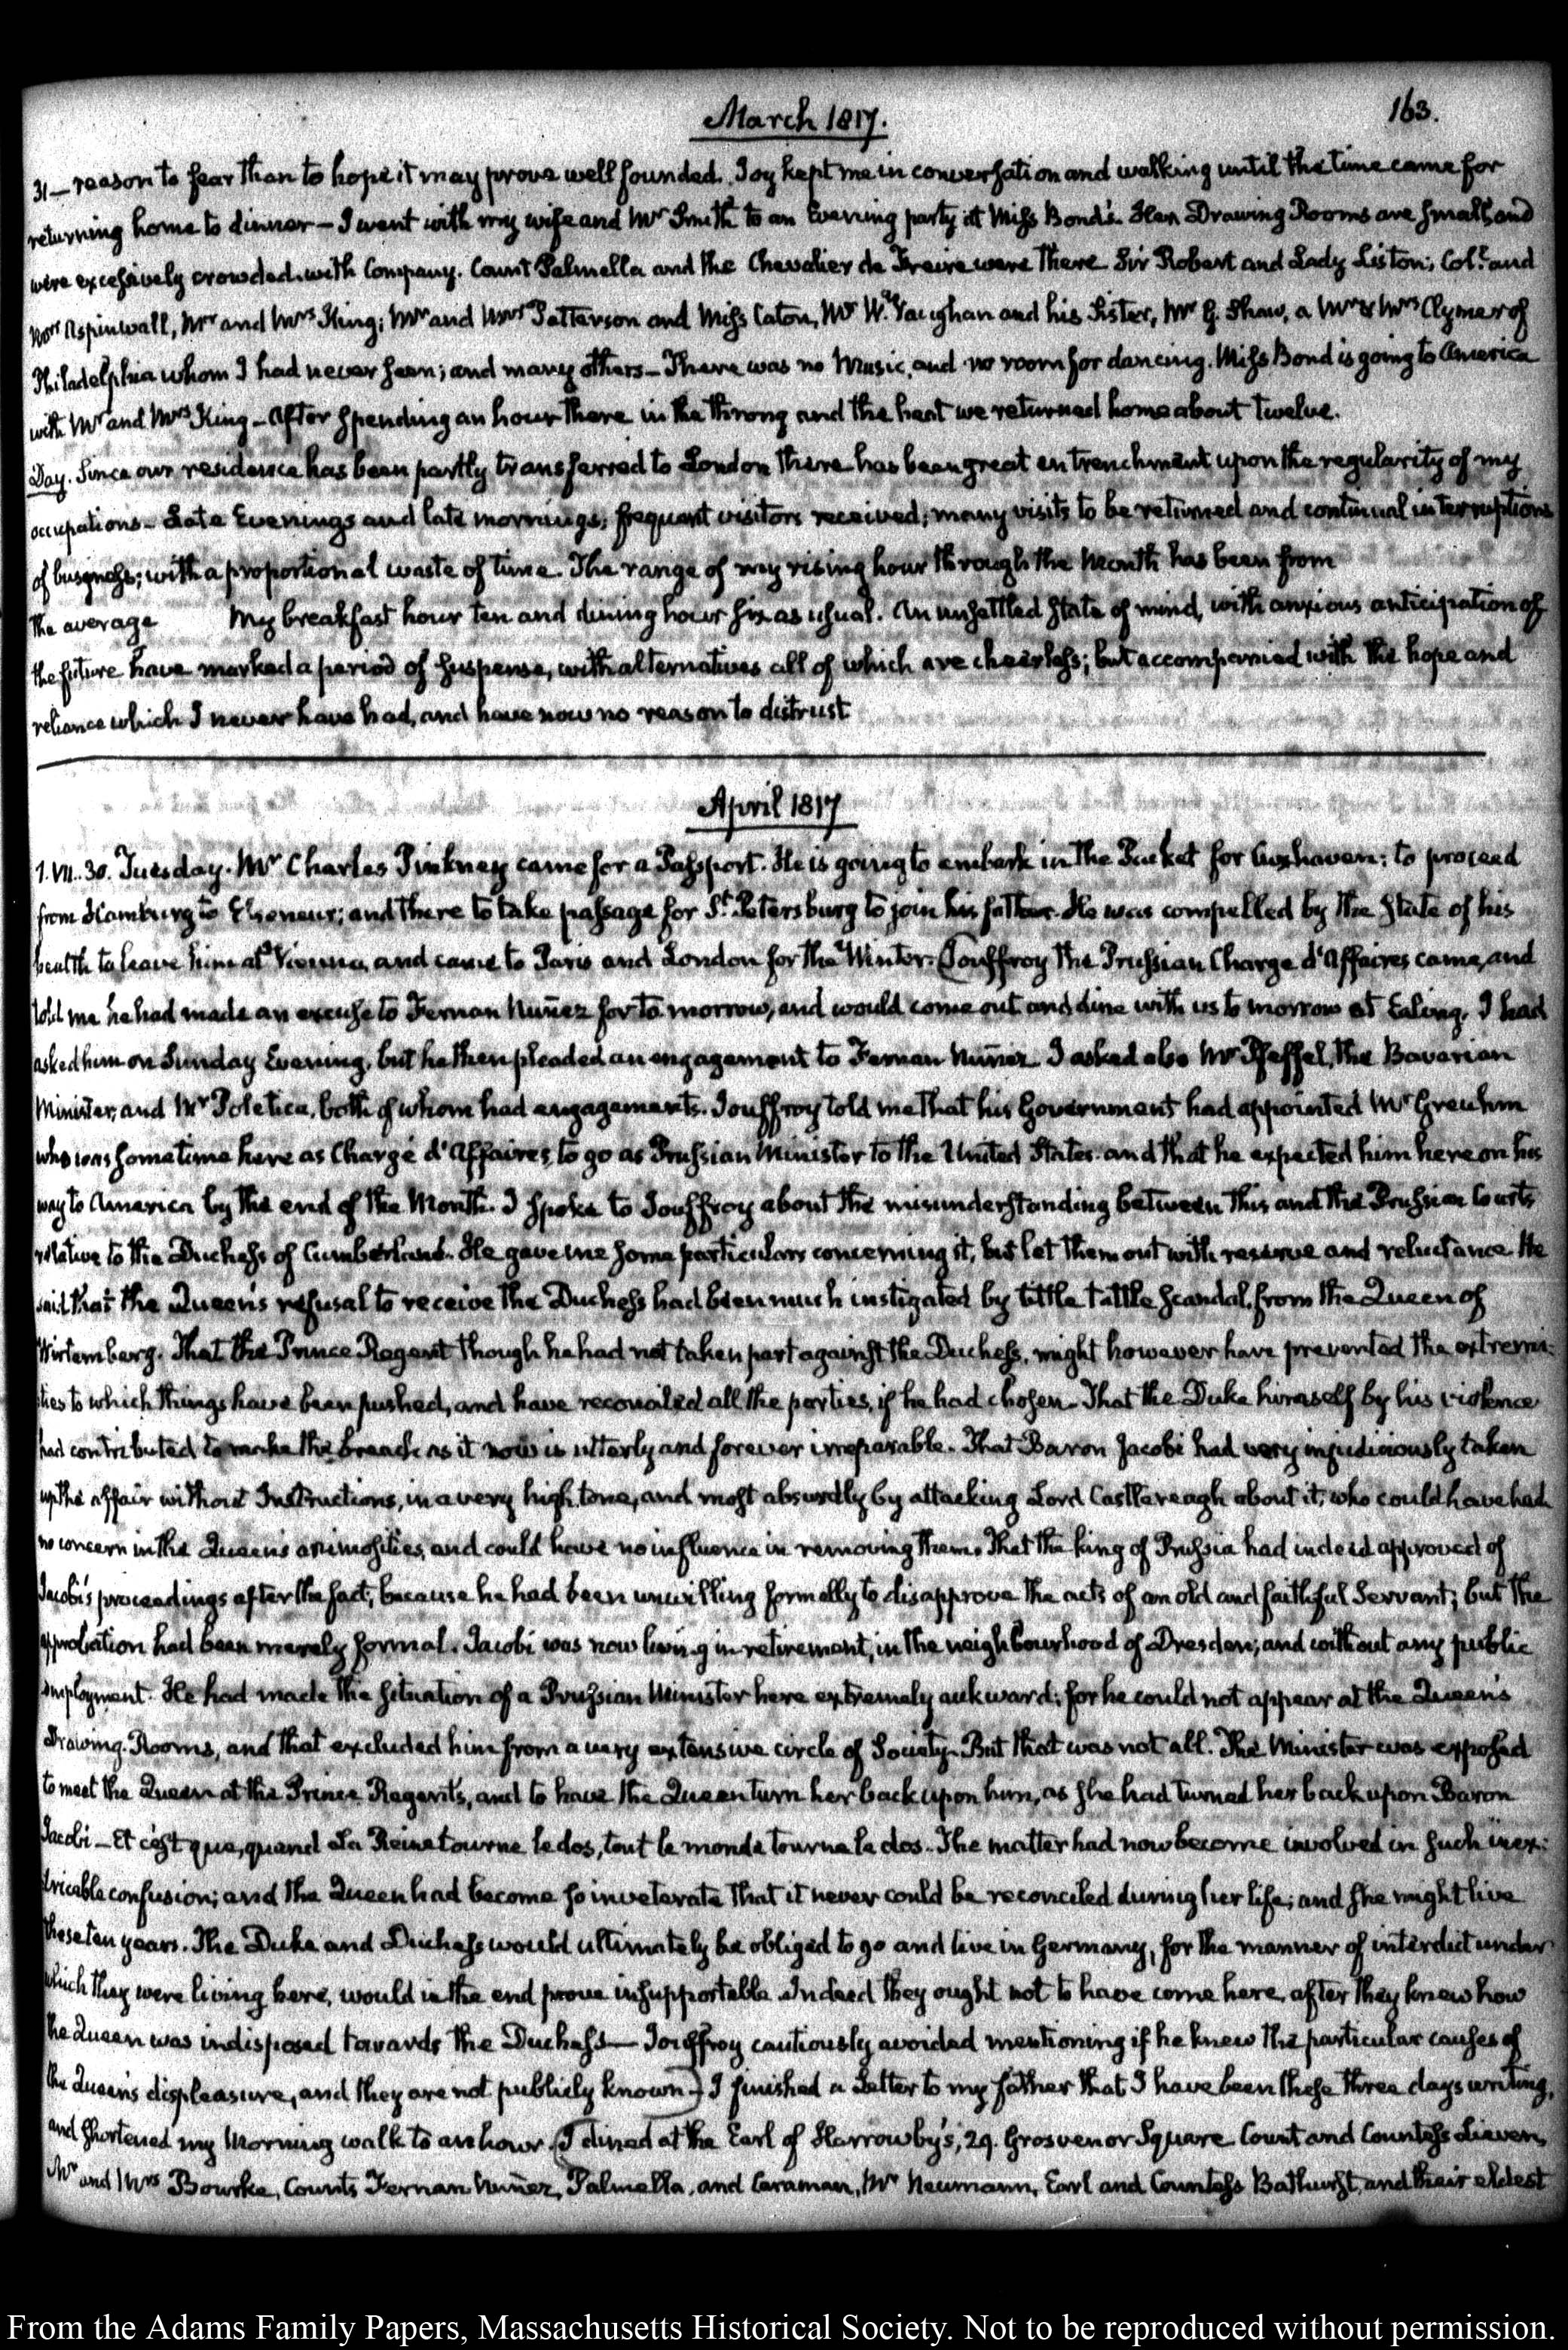 March 1817.
163.
31 — reason to fear than to hope it may prove well founded. Joy kept me in conversation and walking until the time came for
returning home to dinner — I went with my wife and Mr Smith to an Evening party at Miss Bond's. Her Drawing Rooms are small, and
were excessively crowded with Company. Count Palmella and the Chevalier de Freire were there Sir Robert and Lady Liston; Coll. and
Mrs Aspinwall, Mr and Mrs King; Mr and Mrs Patterson and Miss Caton, Mr W. Vaughan and his Sister, Mr G. Shaw, a Mr & Mrs Clymer of
Philadelphia whom I had never seen; and many others — There was no Music, and no room for dancing. Miss Bond is going to America
with Mr and Mrs King — After spending an hour there in the throng and the heat we returned home about twelve.
Day. Since our residence has been partly transferred to London there has been great entrenchment upon the regularity of my
occupations — Late Evenings and late mornings; frequent visitors received; many visits to be returned and continual interruptions
of business; with a proportional waste of time. The range of my rising hour through the Month has been from
the average My breakfast hour ten and dining hour six as usual. An unsettled state of mind, with anxious anticipation of
the future have marked a period of suspense, with alternatives all of which are cheerless; but accompanied with the hope and
reliance which I never have had, and have now no reason to distrust
April 1817
1. VII. 30. Tuesday. Mr Charles Pinkney came for a Passport. He is going to embark in the Packet for Cuxhaven; to proceed
from Hamburg to Elsineur; and there to take passage for St. Petersburg to join his father. He was compelled by the state of his
health to leave him at Vienna, and came to Paris and London for the Winter. (Jouffroy the Prussian Charge d'Affaires came, and
told me he had made an excuse to Fernan Nuñez for to morrow, and would come out and dine with us to morrow at Ealing. I had
asked him on Sunday Evening, but he then pleaded an engagement to Fernan Nuñez. I asked also Mr Pfeffel, the Bavarian
Minister, and Mr Poletica, both of whom had engagements. Jouffroy told me that his Government had appointed Mr Greuhm
who was sometime here as Chargé d'Affaires, to go as Prussian Minister to the United States and that he expected him here on his
way to America by the end of the Month. I spoke to Jouffroy about the misunderstanding between this and the Prussian Courts
relative to the Duchess of Cumberland. He gave me some particulars concerning it, but let them out with reserve and reluctance. He
said that the Queen's refusal to receive the Duchess had been much instigated by tittle tattle scandal, from the Queen of
Wirtemberg. That the Prince Regent though he had not taken part against the Duchess, might however have prevented the extremi-
ties to which things have been pushed, and have reconciled all the parties, if he had chosen. That the Duke himself by his violence
had contributed to make the breach as it now is utterly and forever irreparable. That Baron Jacobi had very injudiciously taken
up the affair without Instructions, in a very high tone, and most absurdly by attacking Lord Castlereagh about it, who could have had
no concern in the Queen's animosities, and could have no influence in removing them. That the king of Prussia had indeed approved of
Jacobi's proceedings after the fact, because he had been unwilling formally to disapprove the acts of an old and faithful Servant; but the
approbation had been merely formal. Jacobi was now living in retirement, in the neighbourhood of Dresden; and without any public
employment. He had made the situation of a Prussian Minister here extremely aukward; for he could not appear at the Queen's
Drawing-Rooms, and that excluded him from a very extensive circle of Society. But that was not all. The Minister was exposed
to meet the Queen at the Prince Regent's, and to have the Queen turn her back upon him, as she had turned her back upon Baron
Jacobi — Et c'est que, quand La Reine tourne le dos, tout le monde tourne le dos. The matter had now become involved in such inex-
tricable confusion; and the Queen had become so inveterate that it never could be reconciled during her life; and she might live
these ten years. The Duke and Duchess would ultimately be obliged to go and live in Germany, for the manner of interdict under
which they were living here, would in the end prove insupportable. Indeed they ought not to have come here, after they knew how
the Queen was indisposed towards the Duchess — Jouffroy cautiously avoided mentioning if he knew the particular causes of
the Queen's displeasure, and they are not publicly known.) I finished a Letter to my father that I have been these three days writing,
and shortened my Morning walk to an hour. (I dined at the Earl of Harrowby's, 29. Grosvenor Square Count and Countess Lieven,
Mr and Mrs Bourke, Counts Fernan Nuñez, Palmella, and Caraman, Mr Neumann, Earl and Countess Bathurst, and their eldest
From the Adams Family Papers, Massachusetts Historical Society. Not to be reproduced without permission.